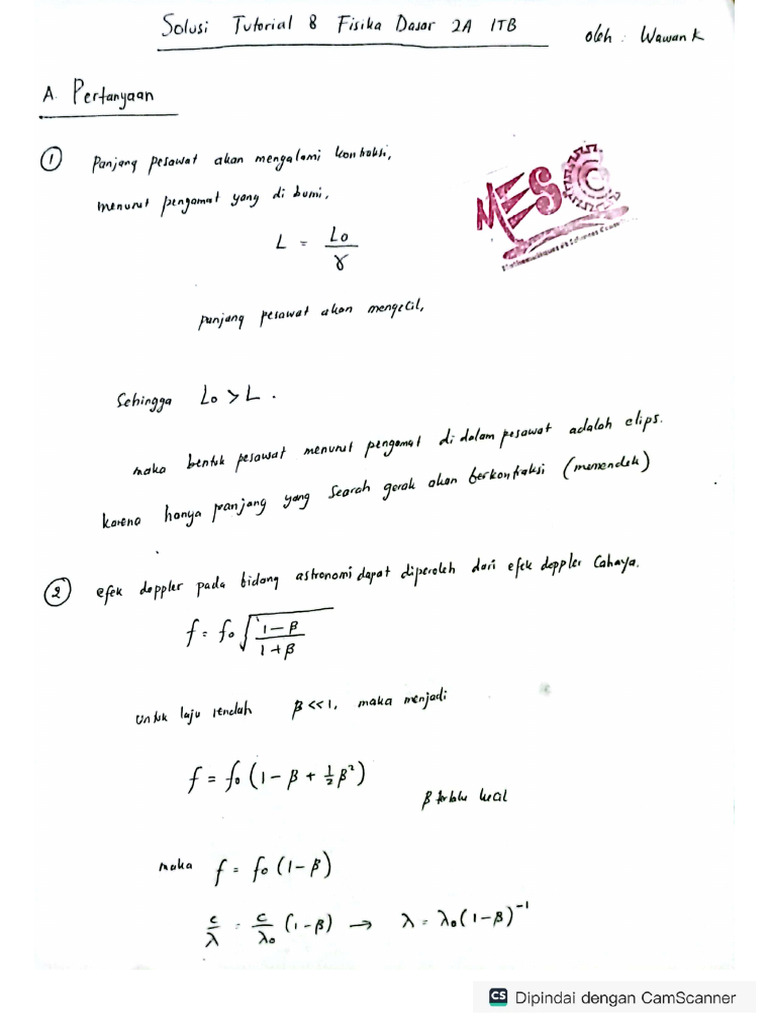 Solusi Tutorial 8 Fisika Dasar 2A ITB
oleh : Wawan K
A. Pertanyaan
① Panjang pesawat akan mengalami kontraksi,
menurut pengamat yang di bumi,
L = L₀/γ
MESC
panjang pesawat akan mengecil,
Sehingga L₀ > L.
maka bentuk pesawat menurut pengamat di dalam pesawat adalah elips.
karena hanya panjang yang searah gerak akan berkontraksi (memendek)
② efek doppler pada bidang astronomi dapat diperoleh dari efek doppler Cahaya.
f = f₀ √((1-β)/(1+β))
untuk laju rendah β << 1, maka menjadi
f = f₀ (1 - β + ½β²)
β terlalu kecil
maka f = f₀ (1-β)
c/λ = c/λ₀ (1-β) → λ = λ₀(1-β)⁻¹
CS Dipindai dengan CamScanner